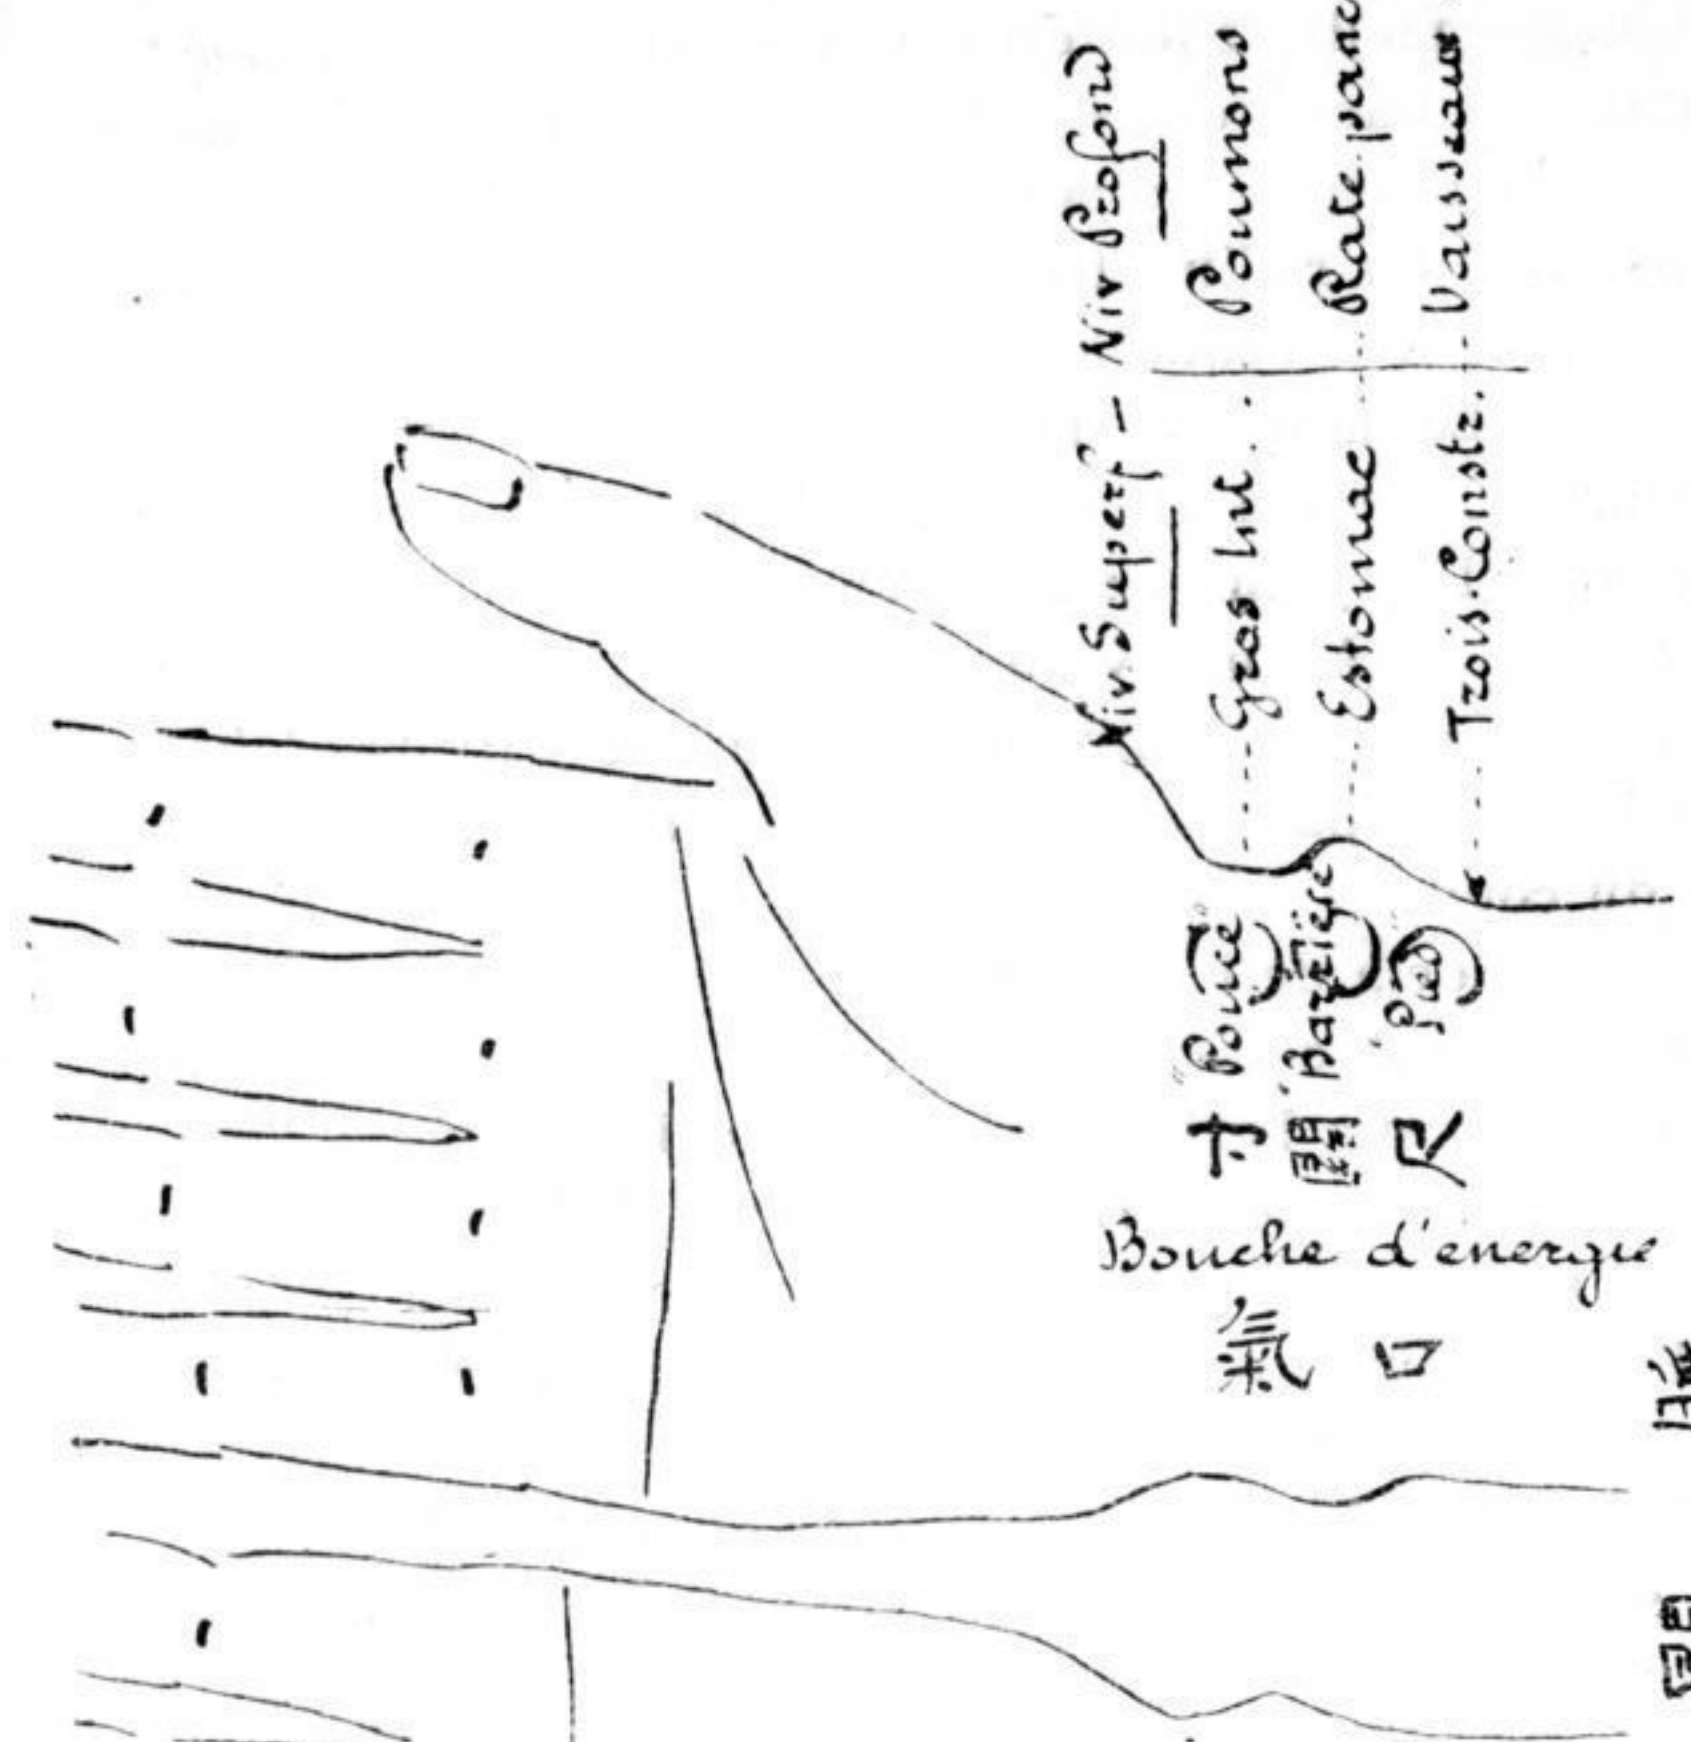 Niv. Superf – Niv Profond
Gros Int. Poumons
Estomac Rate panc
Trois. Constr. Vaisseaux
寸 "Pouce"
關 "Barrière"
尺 "Pied"
Bouche d'énergie
氣 口